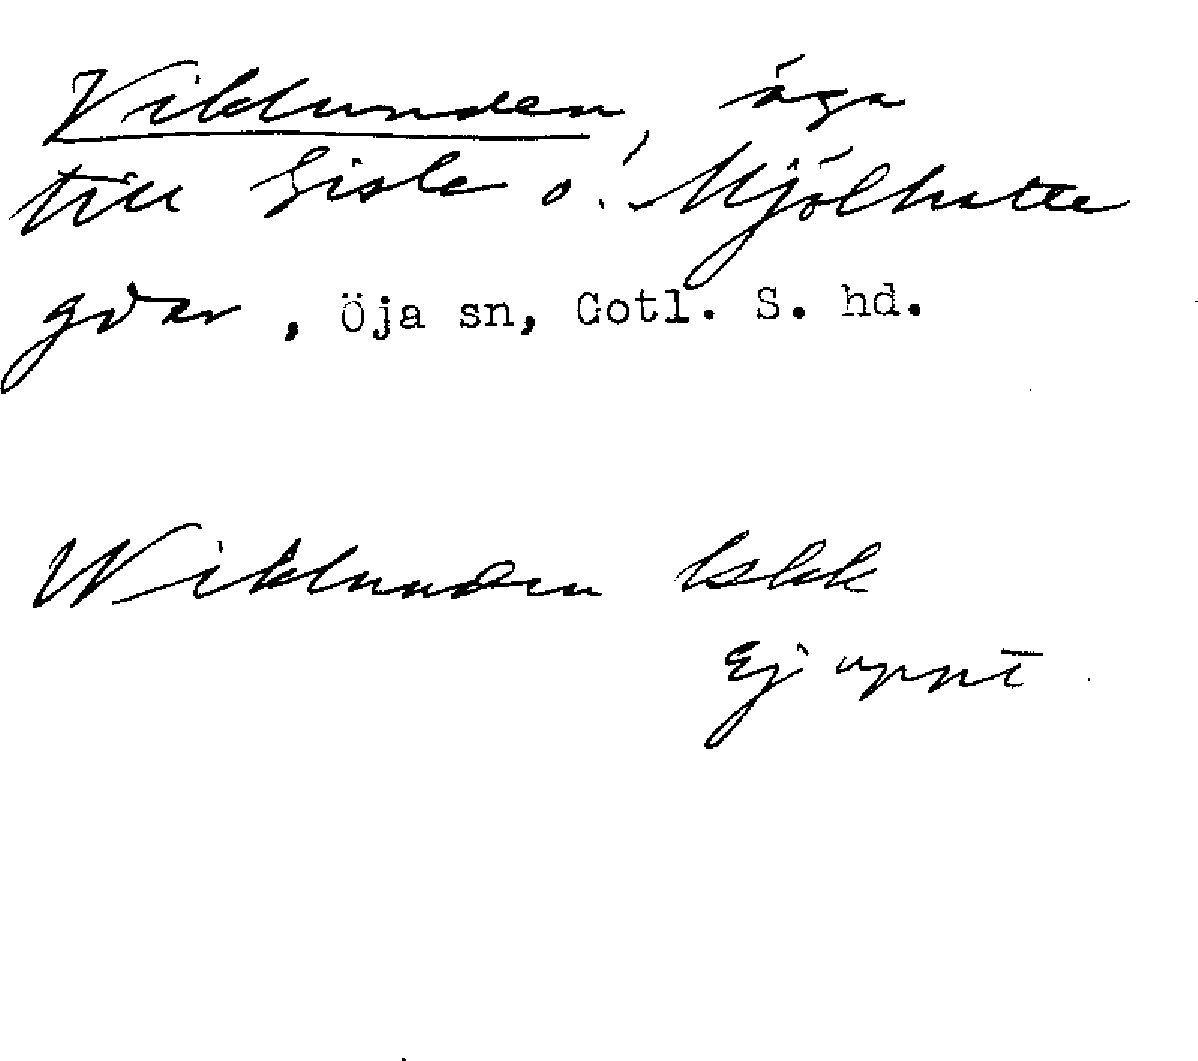 Viklunden, äga
till Sisle o. Mjölhatte
gdar, Öja sn, Gotl. S. hd.
Wiklunden lskk
Ej uppt